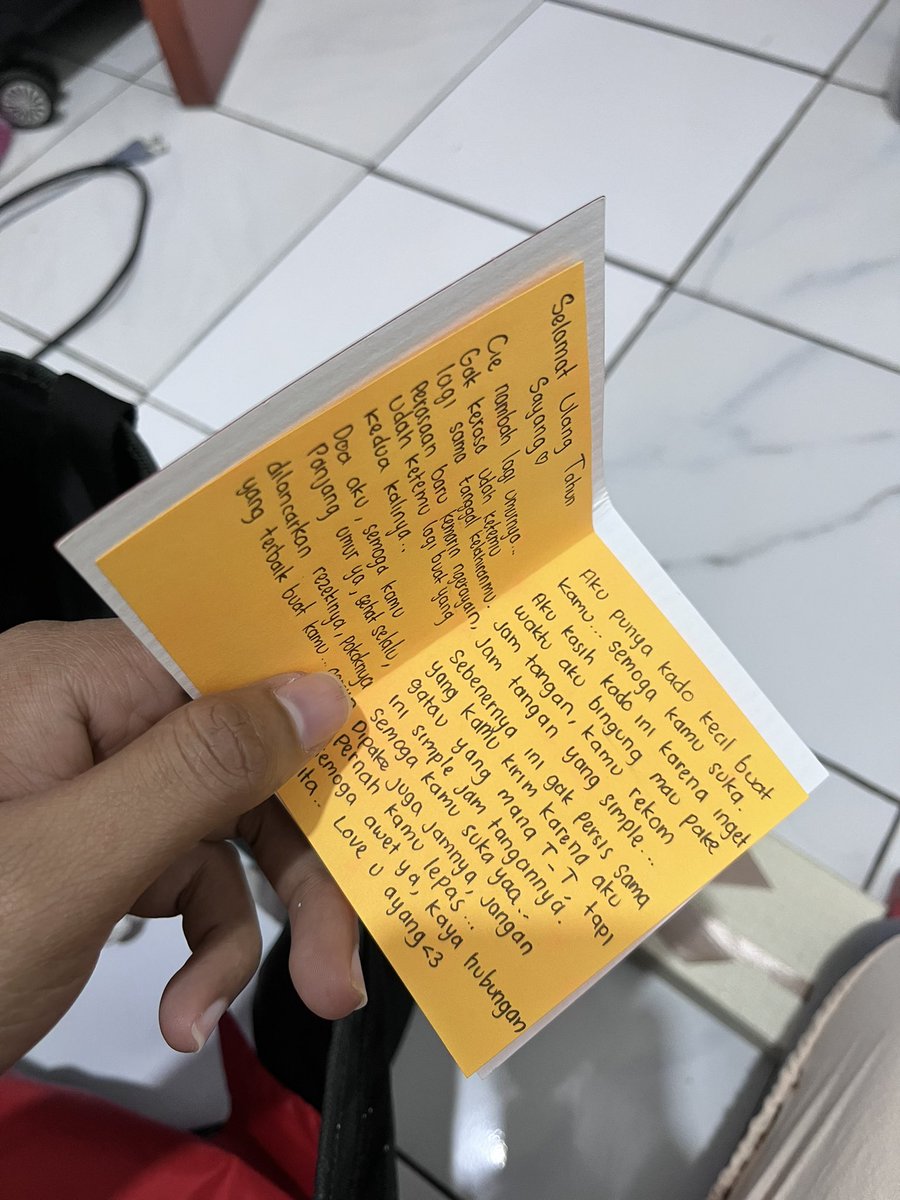 Selamat Ulang Tahun
Sayang ♡
Cie nambah lagi umurnya...
Gak kerasa udah ketemu
lagi sama tanggal kelahiranmu.
Perasaan baru kemarin ngerayain,
udah ketemu lagi buat yang
kedua kalinya..
Doa aku, semoga kamu
Panjang umur ya, sehat selalu,
dilancarkan rezekinya, pokoknya
yang terbaik buat kamu...
Aku punya kado kecil buat
kamu... semoga kamu suka.
Aku kasih kado ini karena inget
waktu aku bingung mau pake
jam tangan, kamu rekom
jam tangan yang simple...
Sebenernya ini gak persis sama
yang kamu kirim karena aku
gatau yang mana T_T tapi
ini simple jam tangannya.
semoga kamu suka yaa..
Dipake juga jamnya, jangan
Pernah kamu lepas...
semoga awet ya, kaya hubungan
ita..
Love u ayang<3